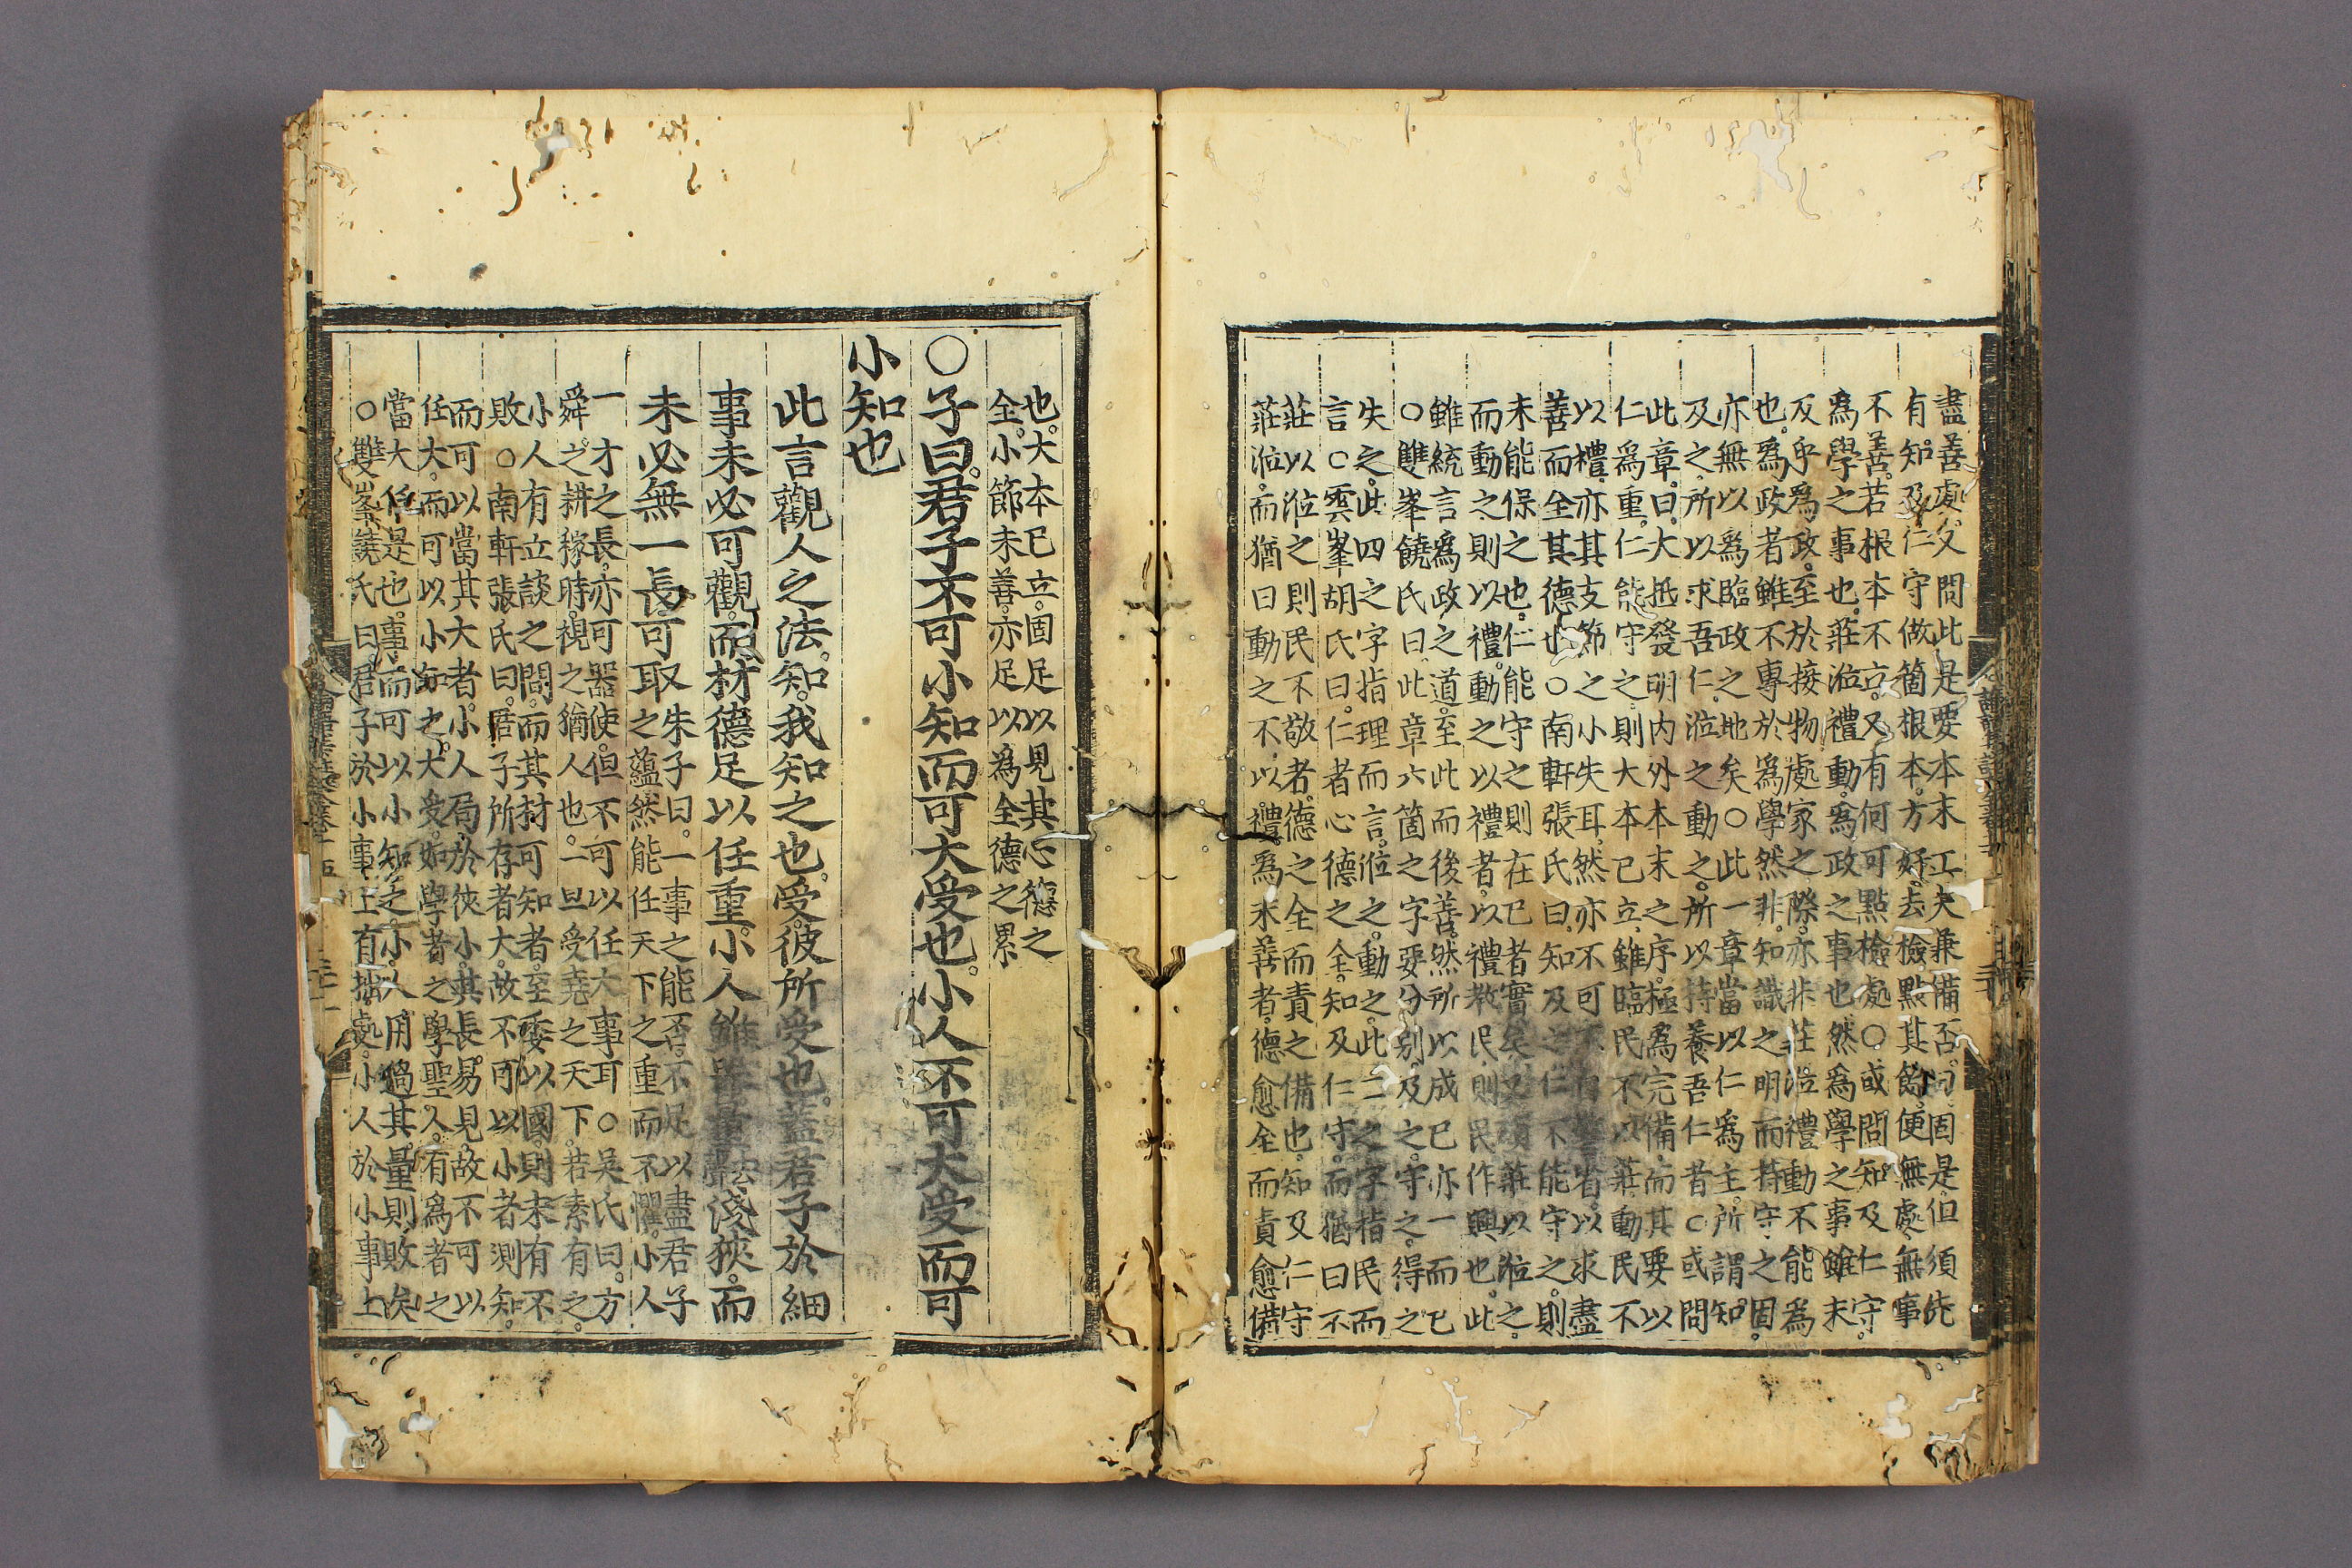 盡善處父問此是要本末工夫兼備否曰固是但須先
有知及仁守做箇根本方好去檢點其餘便無處無事
不善若根本不立又有何可點檢處○或問知及仁守
爲學之事也莊涖禮動爲政之事也然爲學之事雖未
及乎爲政至於接物處家之際亦非莊涖禮動不能爲
也爲政者雖不專於爲學然非知識之明而持守之固
亦無以爲臨政之地矣○此一章當以仁爲主所謂知
及之所以求吾仁涖之動之所以持養吾仁者○或問
此章曰大抵發明内外本末之序極爲完備而其要以
仁爲重仁能守之則大本已立雖臨民不以莊動民不
以禮亦其支節之小失耳然亦不可不自警省以求盡
善而全其德也○南軒張氏曰知及之仁不能守之則
未能保之也仁能守之則在已者實矣又須莊以涖之
而動之則以禮動之以禮者以禮教民則民作興也此
雖統言爲政之道至此而後善然所以成已亦一而已
○雙峯饒氏曰此章六箇之字要分别及之守之得之
失之此四之字指理而言涖之動之此二之字指民而
言○雲峯胡氏曰仁者心德之全知及仁守而猶曰不
莊以涖之則民不敬者德之全而責之備也知及仁守
莊涖而猶曰動之不以禮爲未善者德愈全而責愈備
也大本已立固足以見其心德之
全小節未善亦足以爲全德之累
○子曰君子不可小知而可大受也小人不可大受而可
小知也
此言觀人之法知我知之也受彼所受也蓋君子於細
事未必可觀而材德足以任重小人雖器量淺狹而
未必無一長可取朱子曰一事之能否不足以盡君子
之蘊然能任天下之重而不懼小人
一才之長亦可器使但不可以任大事耳○吳氏曰方
舜之耕稼時視之猶人也一旦受堯之天下若素有之
小人有立談之間而其材可知者至委以國則未有不
敗○南軒張氏曰君子所存者大故不可以小者測知
而可以當其大者小人局於狹小其長易見故不可以
任大而可以小知之大受如學者之學聖人有爲者之
當大任是也事而可以小知之小人用過其量則敗矣
○雙峯饒氏曰君子於小事上有拙處小人於小事上